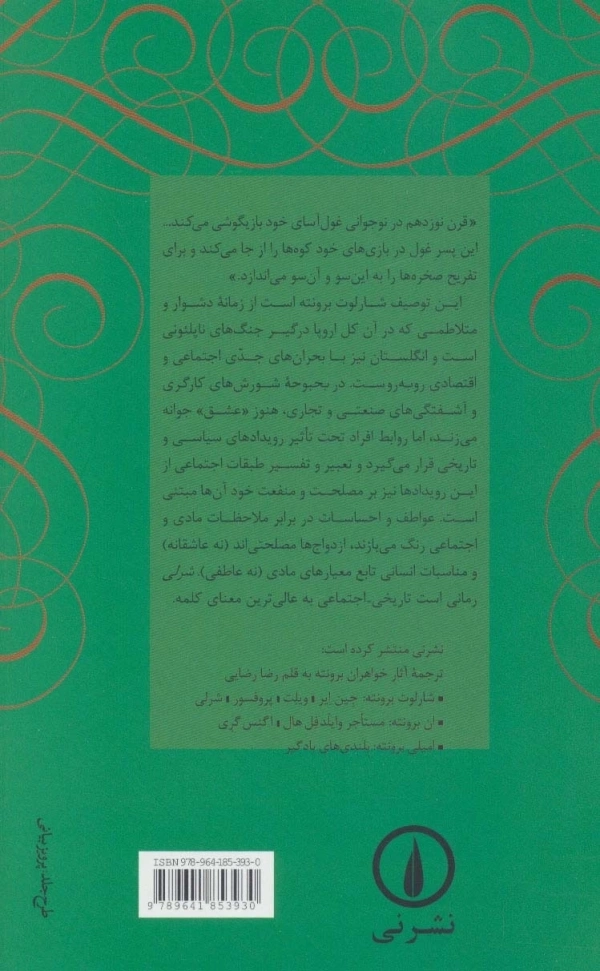 «قرن نوزدهم در نوجوانی غول‌آسای خود بازیگوشی می‌کند...
این پسر غول در بازی‌های خود کوه‌ها را از جا می‌کند و برای
تفریح صخره‌ها را به این‌سو و آن‌سو می‌اندازد.»
این توصیف شارلوت برونته است از زمانهٔ دشوار و
متلاطمی که در آن کل اروپا درگیر جنگ‌های ناپلئونی
است و انگلستان نیز با بحران‌های جدّی اجتماعی و
اقتصادی روبه‌روست. در بحبوحهٔ شورش‌های کارگری
و آشفتگی‌های صنعتی و تجاری، هنوز «عشق» جوانه
می‌زند، اما روابط افراد تحت تأثیر رویدادهای سیاسی و
تاریخی قرار می‌گیرد و تعبیر و تفسیر طبقات اجتماعی از
این رویدادها نیز بر مصلحت و منفعت خود آن‌ها مبتنی
است. عواطف و احساسات در برابر ملاحظات مادی و
اجتماعی رنگ می‌بازند، ازدواج‌ها مصلحتی‌اند (نه عاشقانه)
و مناسبات انسانی تابع معیارهای مادی (نه عاطفی). شرلی
رمانی است تاریخی-اجتماعی به عالی‌ترین معنای کلمه.
نشرنی منتشر کرده است:
ترجمهٔ آثار خواهران برونته به قلم رضا رضایی
▪ شارلوت برونته: جین ایر ▪ ویلت ▪ پروفسور ▪ شرلی
▪ ان برونته: مستأجر وایلدفِل هال ▪ اگنس گری
▪ امیلی برونته: بلندی‌های بادگیر
طرح جلد: پرویز بیانی
ISBN 978-964-185-393-0
9 789641 853930
نشرنی